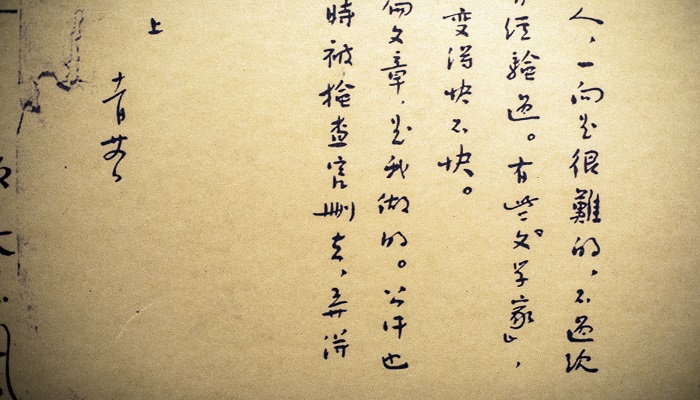 人，一向是很難的，不過現
经驗過。有些「文学家」，
变得快不快。
篇文章，是我做的。公汗也
時被检查官刪去，弄得
上